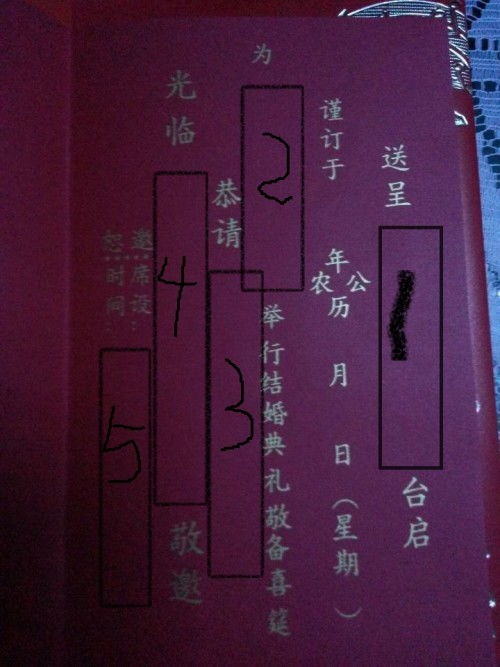 送呈 1 台启
谨订于 年 公农历 月 日（星期 ）
为 2 举行结婚典礼敬备喜筵
恭请 3
光临 4 敬邀
恕邀
席设：
时间： 5